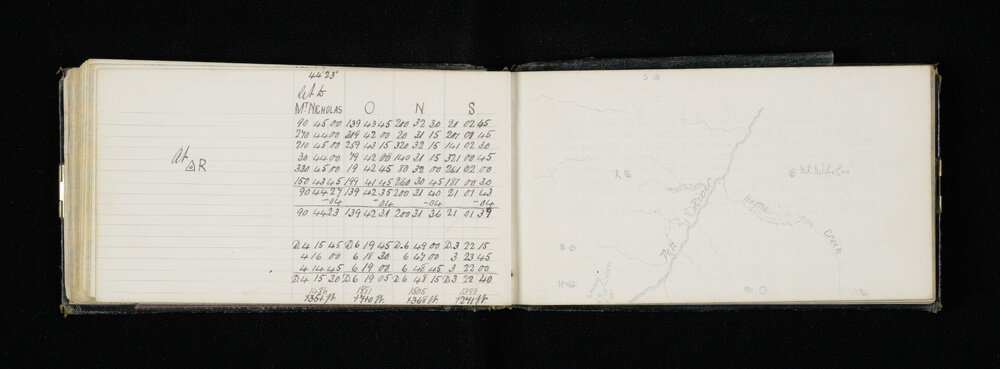 44°23'
Lat to
At △R
Mt NICHOLAS O N S
90 45 00 139 43 45 200 32 30 21 02 45
270 44 00 319 42 00 20 31 15 201 01 45
210 45 00 259 43 15 320 32 15 141 02 30
30 44 00 79 42 00 140 31 15 321 00 45
330 45 00 19 42 45 80 32 00 261 02 00
150 43 45 199 41 45 260 30 45 181 00 30
90 44 27 139 42 35 200 31 40 21 01 43
-04 -04 -04 -04
90 44 23 139 42 31 200 31 36 21 01 39
D.4 15 45 D.6 19 45 D.6 49 00 D.3 22 15
4 16 00 6 18 30 6 47 00 3 23 45
4 14 45 6 19 00 6 48 45 3 22 00
D.4 15 30 D.6 19 05 D.6 48 15 D.3 22 40
1486 1505 1398
S
R
Mt Nicholas
River
Home
Creek
N
O